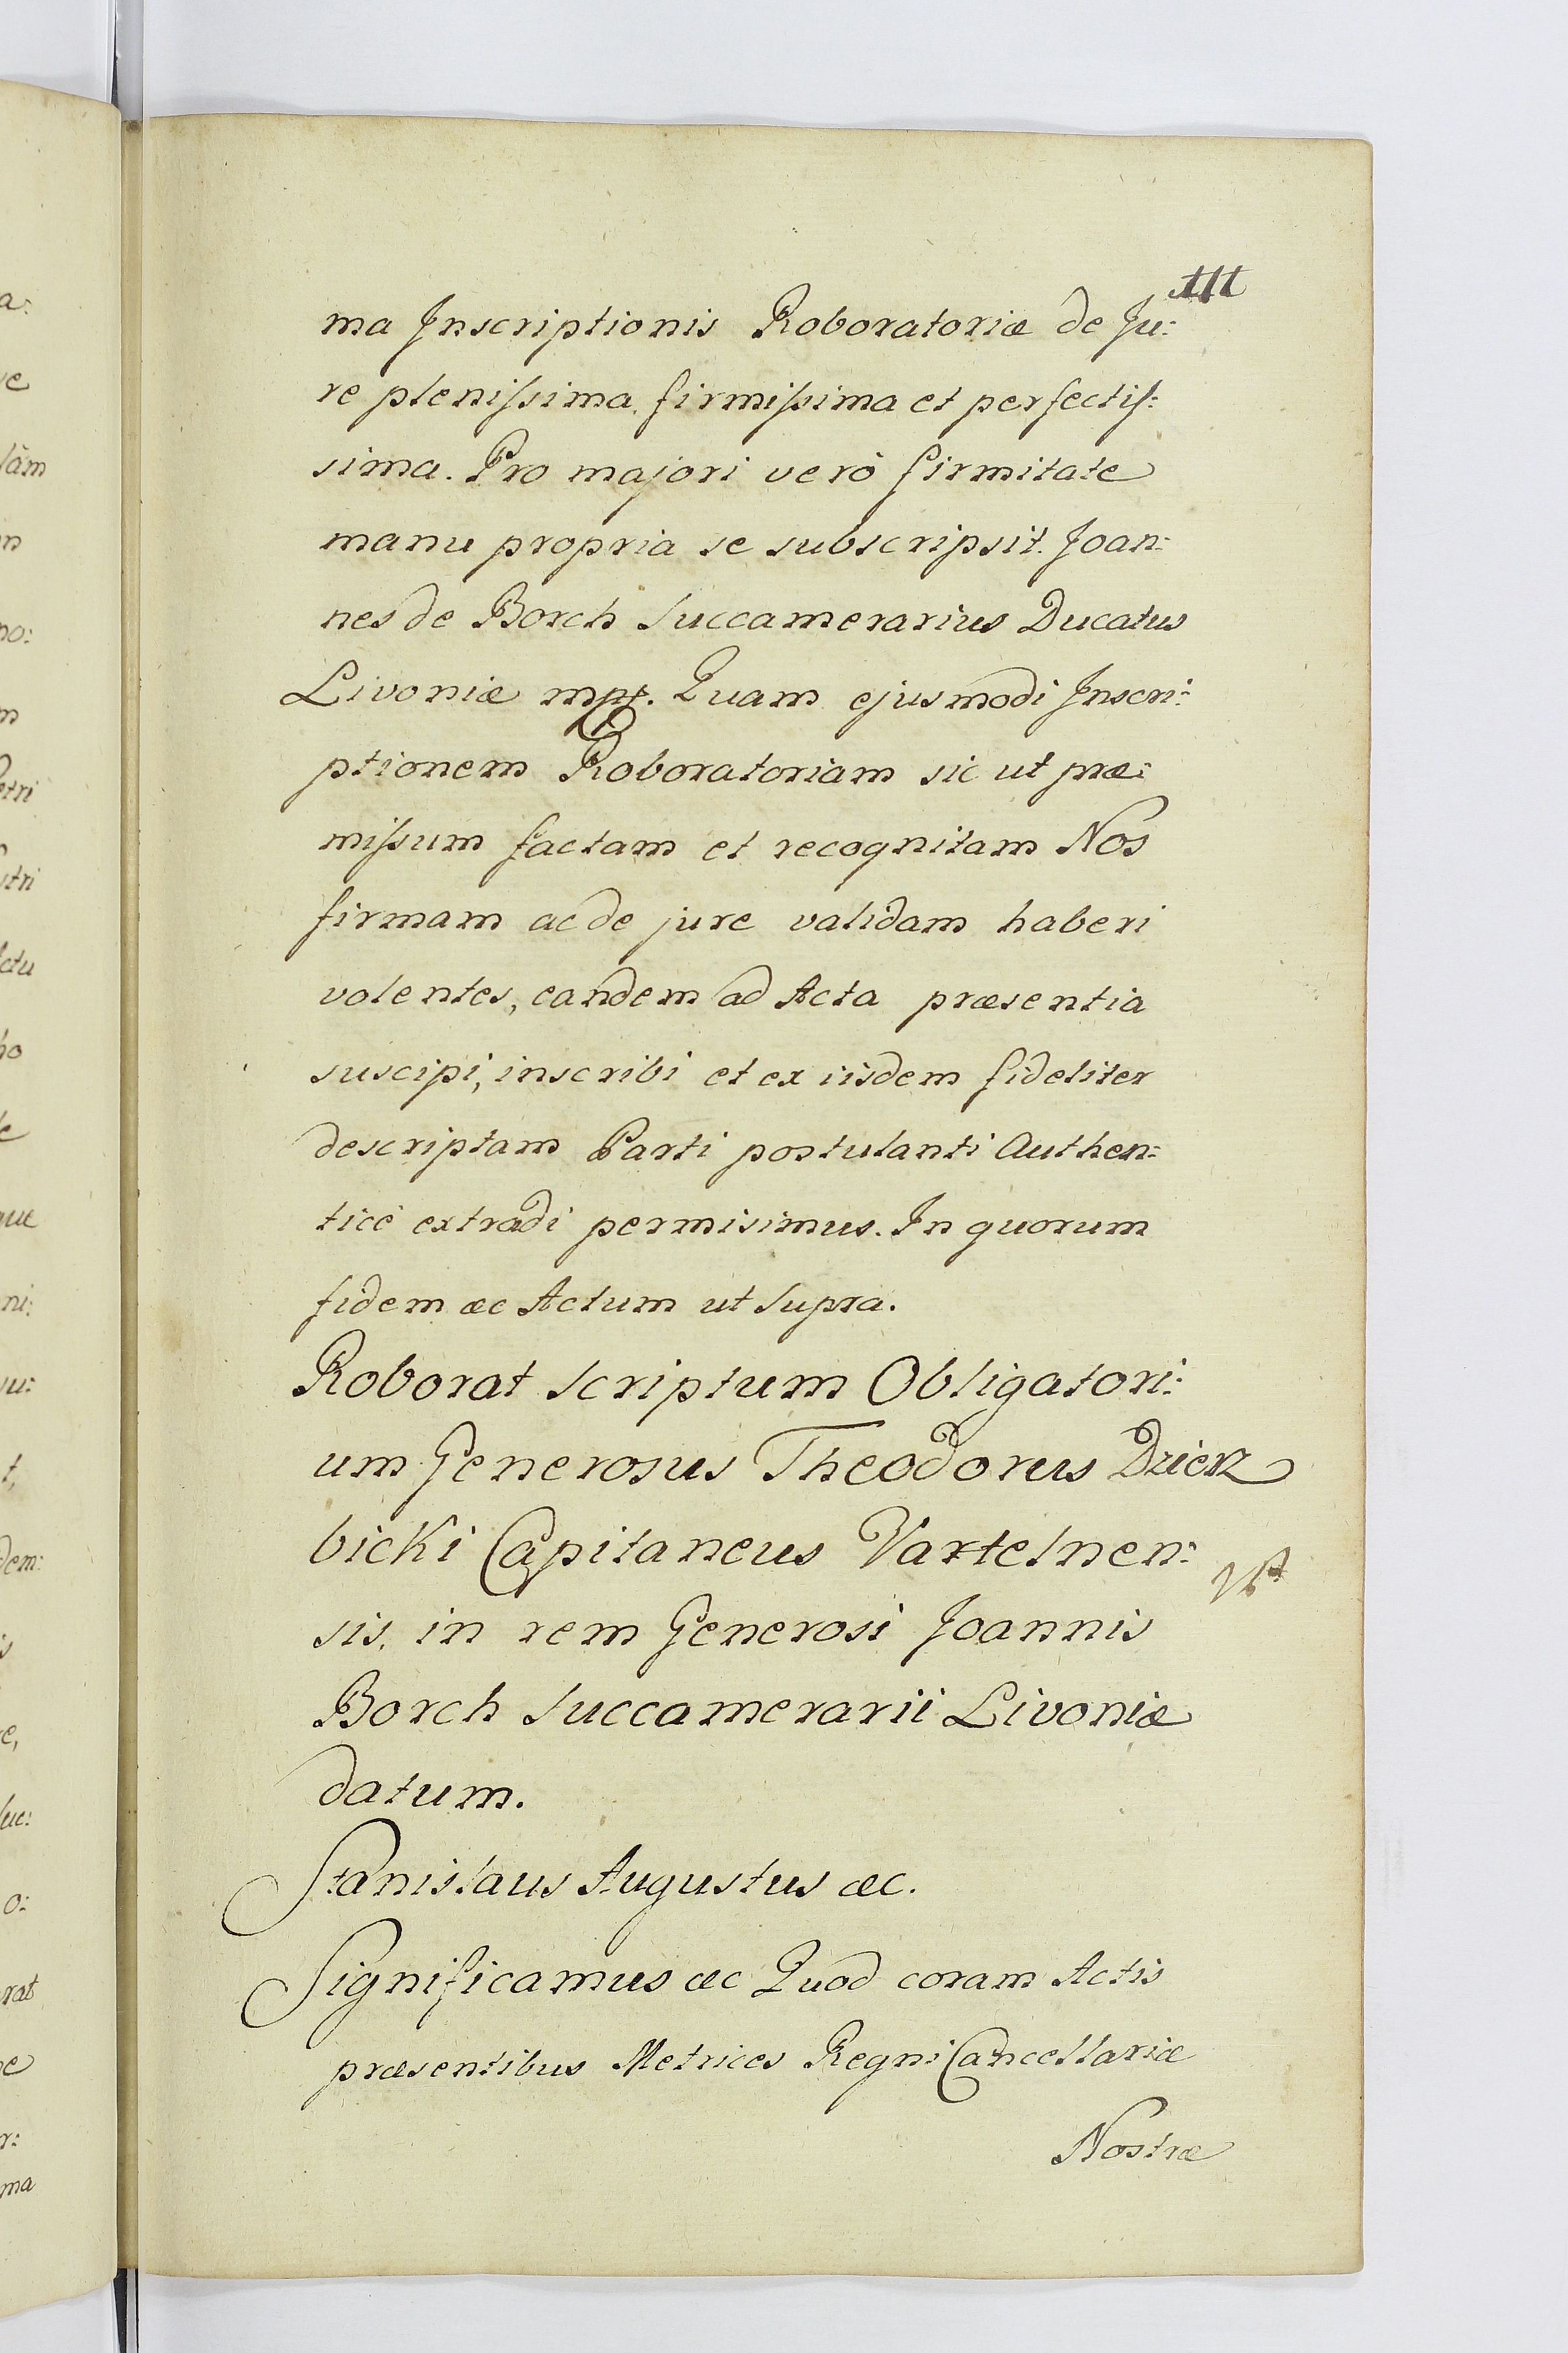 111
ma Inscriptionis Roboratoriæ de Ju:
re plenissima, firmissima et perfectis:
sima. Pro majori verò firmitate
manu propria se subscripsit. Joan:
nes de Borch Succamerarius Ducatus
Livoniæ mpp. Quam ejusmodi Inscri:
ptionem Roboratoriam sic ut præ:
missum factam et recognitam Nos
firmam ac de jure validam haberi
volentes, eandem ad Acta præsentia
suscipi, inscribi et ex iisdem fideliter
descriptam Parti postulanti Authen:
ticè extradi permisimus. In quorum
fidem æc Actum ut Supra.
Roborat Scriptum Obligatori:
um Generosus Theodorus Dzierz
bicki Capitaneus Vartelnen:
sis, in rem Generosi Joannis
Borch Succamerarii Livoniæ
datum.
Stanislaus Augustus æc.
Significamus æc Quod coram Actis
præsentibus Metrices Regni Cancellariæ
Nostræ